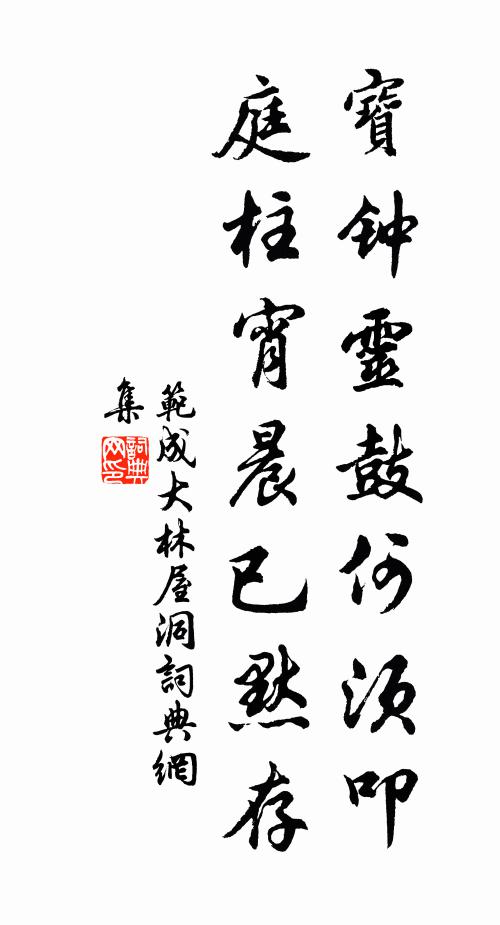 寶钟靈鼓何須叩
庭柱宵晨已默存
範成大林屋洞詞典網
集
詞典網印